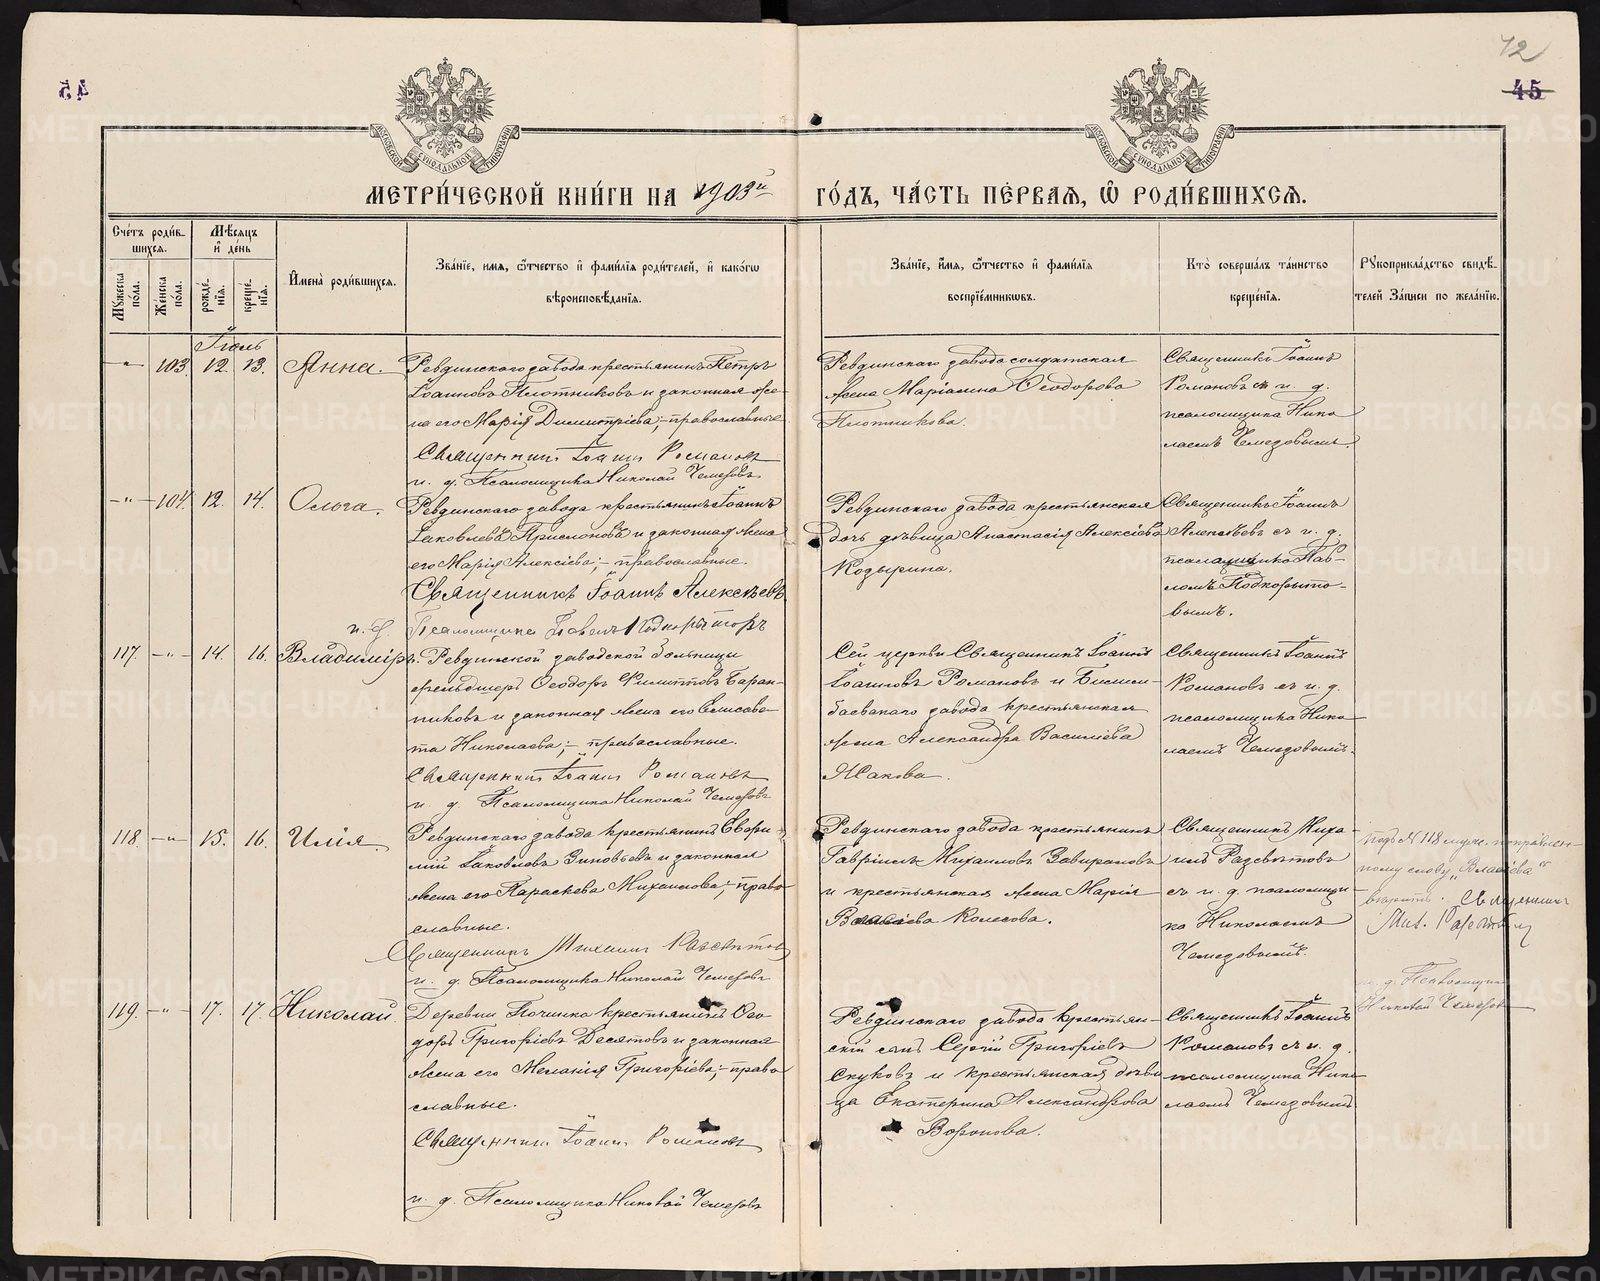 42
45
МОСКОВСКОЙ СѴНОДАЛЬНОЙ ТИПОГРАФІИ
МОСКОВСКОЙ СѴНОДАЛЬНОЙ ТИПОГРАФІИ
МЕТРИ́ЧЕСКОЙ КНИ́ГИ НА 1903й ГО́ДЪ, ЧА́СТЬ ПЕ́РВАѦ, Ѡ РОДИ́ВШИХСѦ.
Сче́тъ роди́вшихсѧ.
Мѣ́сѧцъ и҆ де́нь
Мꙋ́жеска по́ла.
Же́нска по́ла.
рожде́нїѧ.
креще́нїѧ.
И҆мена̀ роди́вшихсѧ.
Зва́нїе, имѧ, ѻ҆́тчество и҆ фамилїѧ роди́телей, и҆ како́гѡ
вѣроисповѣ́данїѧ.
Зва́нїе, и҆́мѧ, ѻ҆́тчество и҆ фами́лїѧ
воспрїе́мникѡвъ.
Кто̀ соверша́лъ та́инство
креще́нїѧ.
Рꙋкоприкла́дство свидѣ́телей За́писи по жела́нїю.
Іюль
103. 12. 13. Анна.
Ревдинскаго завода крестьянинъ Петръ
Іоанновъ Плотниковъ и законная же-
на его Марія Димитріева; - православные
Священникъ Іоаннъ Романовъ
и. д. Псаломщика Николай Чемезовъ
Ревдинскаго завода солдатская
жена Маріамна Ѳеодорова
Плотникова.
Священникъ Іоаннъ
Романовъ съ и. д.
псаломщика Нико
лаемъ Чемезовымъ.
104. 12. 14. Ольга.
Ревдинскаго завода крестьянинъ Іоаннъ
Іаковлевъ и законная жена
его Марія Алексіева; - православные.
Священникъ Іоаннъ Алексѣевъ
и. д. Псаломщика Павелъ
Ревдинскаго завода крестьянская
дочь дѣвица Анастасія Алексіева
Козырина.
Священникъ Іоаннъ
Алексѣевъ съ и. д.
псаломщика Пав-
ломъ Подкорыто-
вымъ.
117. 14. 16. Владиміръ.
Ревдинской заводской больницы
фельдшеръ Ѳеодоръ Филипповъ Баран-
никовъ и законная жена его Елисаве-
та Николаева; - православные.
Священникъ Іоаннъ Романовъ
и. д. Псаломщика Николай Чемезовъ
Сей церкви Священникъ Іоаннъ
Іоанновъ Романовъ и Билим-
баевскаго завода крестьянская
жена Александра Василіева
Жакова.
Священникъ Іоаннъ
Романовъ съ и. д.
псаломщика Нико
лаемъ Чемезовымъ.
118. 15. 16. Илія
Ревдинскаго завода крестьянинъ
Іаковлевъ Зиновьевъ и законная
жена его Параскева Михаилова; - право
славные.
Священникъ Михаилъ Разсвѣтовъ
и. д. Псаломщика Николай Чемезовъ
Ревдинскаго завода крестьянинъ
Гавріилъ Михаиловъ
и крестьянская жена Марія
Власіева Колесова.
Священникъ Миха-
илъ Разсвѣтовъ
съ и. д. псаломщи-
ка Николаемъ
Чемезовымъ.
подъ № 118 муж. поправлен-
ному слову „Власіева“
вѣрить. Священникъ
Мих. Разсвѣтовъ
и. д. Псаломщика
Николай Чемезовъ
119. 17. 17. Николай.
Деревни Починка крестьянинъ Ѳео-
доръ Григоріевъ Десятовъ и законная
жена его Меланія Григоріева; - право
славные.
Священникъ Іоаннъ Романовъ
и. д. Псаломщика Николай Чемезовъ
Ревдинскаго завода крестьян-
скій сынъ Сергій Григоріевъ
Скуковъ и крестьянская дѣви
ца Екатерина Александрова
Воронова.
Священникъ Іоаннъ
Романовъ съ и. д.
псаломщика Нико
лаемъ Чемезовымъ
METRIKI.GASO-URAL.RU